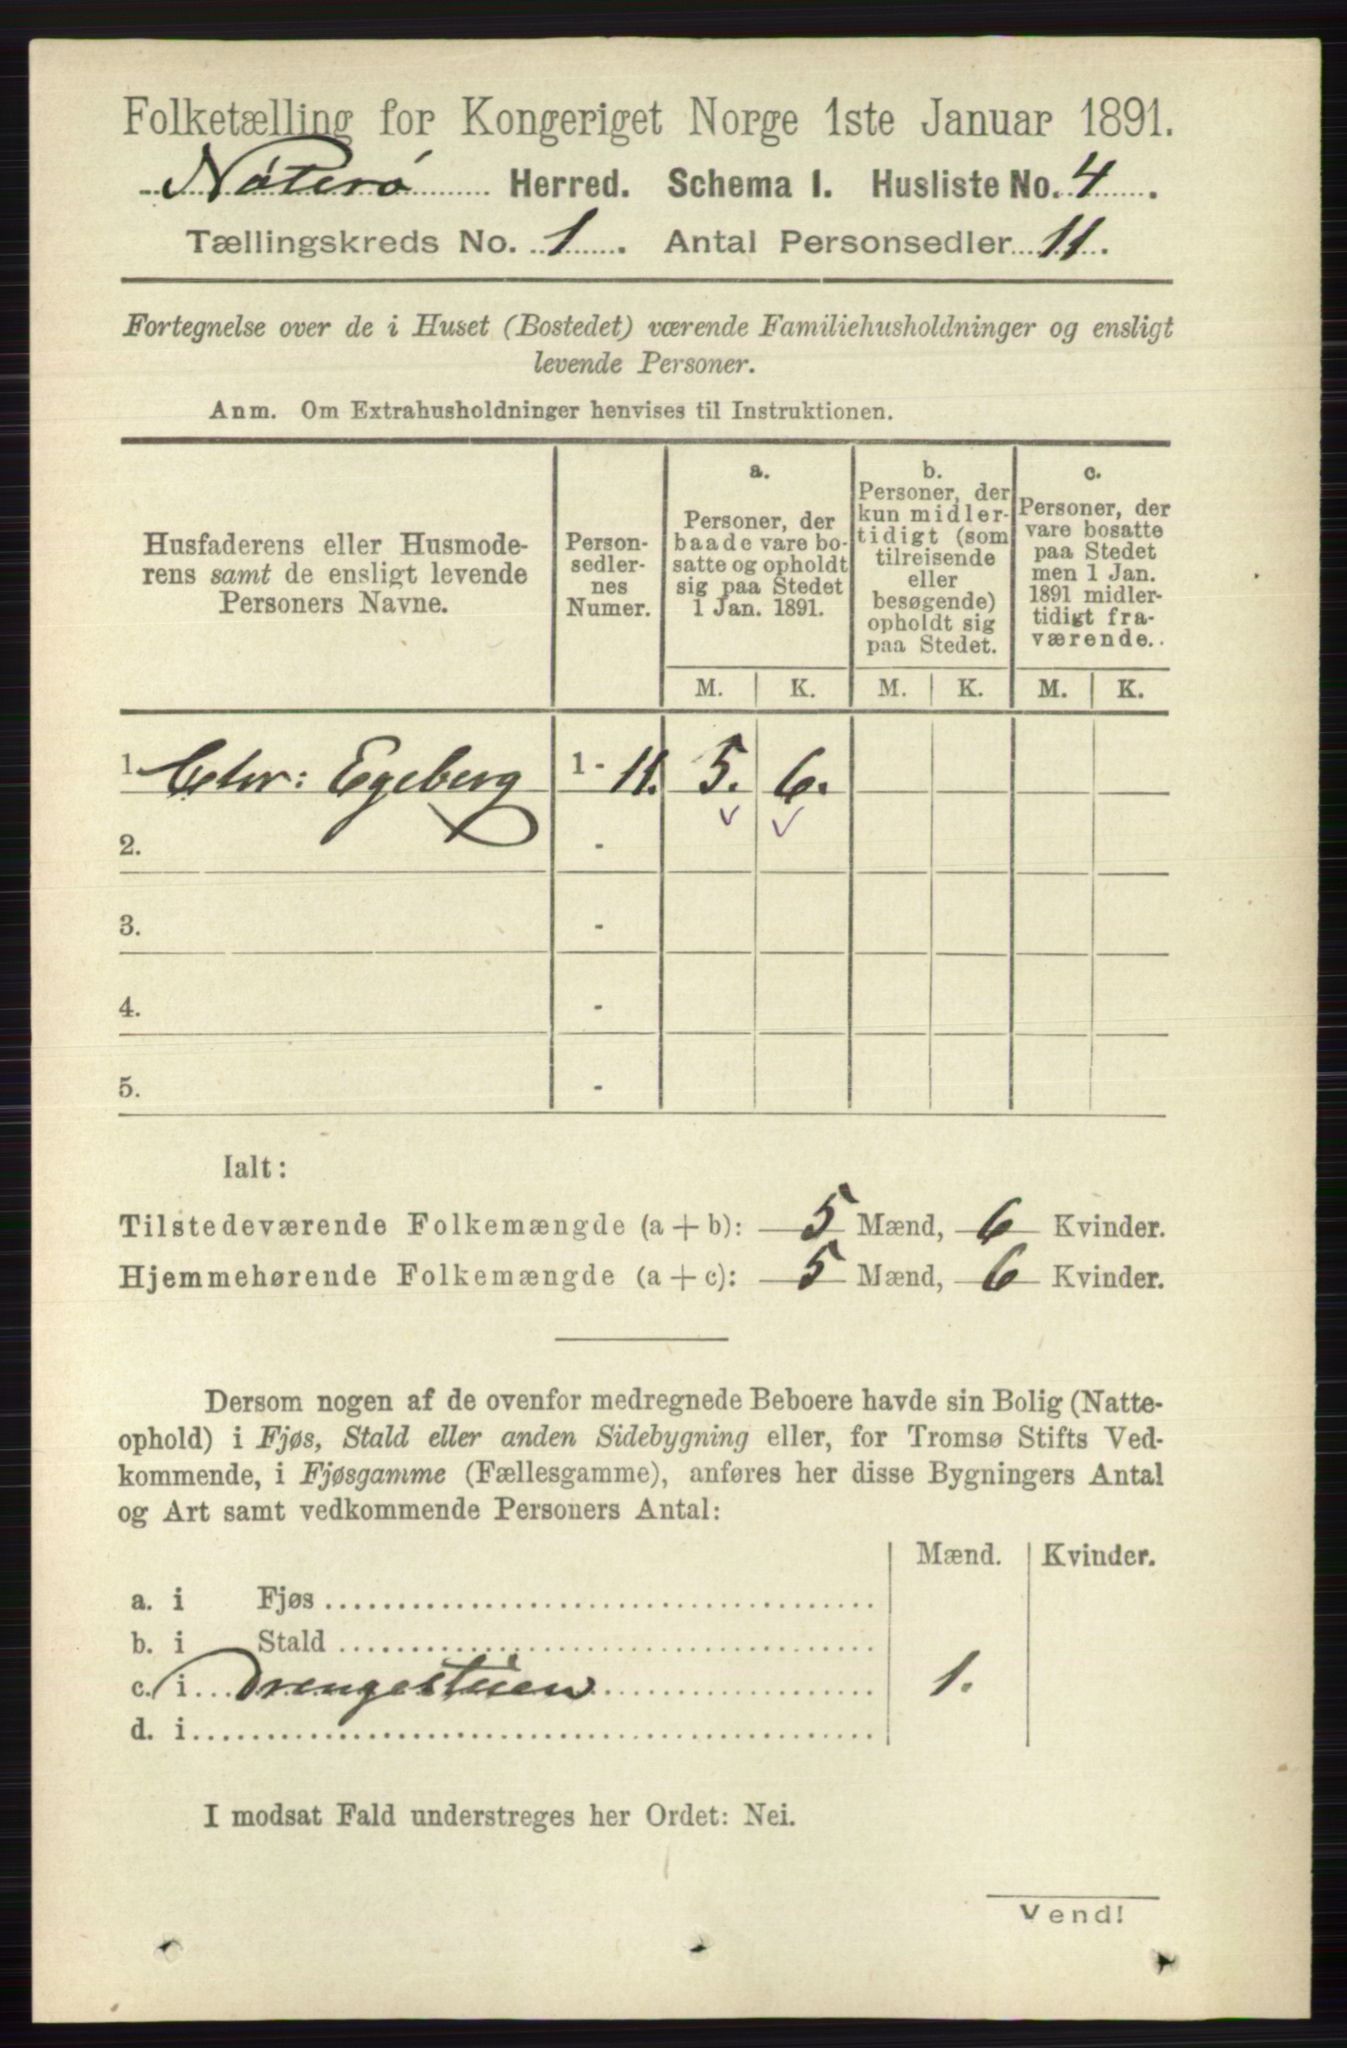 Folketælling for Kongeriget Norge 1ste Januar 1891.
Nøterø Herred. Schema 1. Husliste No. 4.
Tællingskreds No. 1. Antal Personsedler 11.
Fortegnelse over de i Huset (Bostedet) værende Familiehusholdninger og ensligt
levende Personer.
Anm. Om Extrahusholdninger henvises til Instruktionen.
Husfaderens eller Husmode-
rens samt de ensligt levende
Personers Navne.
Person-
sedler-
nes
Numer.
a.
Personer, der
baade vare bo-
satte og opholdt
sig paa Stedet
1 Jan. 1891.
b.
Personer, der
kun midler-
tidigt (som
tilreisende
eller
besøgende)
opholdt sig
paa Stedet.
c.
Personer, der
vare bosatte
paa Stedet
men 1 Jan.
1891 midler-
tidigt fra-
værende.
M. K. M. K. M. K.
1. Chr: Egeberg 1 - 11. 5. 6.
2. -
3. -
4. -
5. -
Ialt:
Tilstedeværende Folkemængde (a + b): 5 Mænd, 6 Kvinder.
Hjemmehørende Folkemængde (a + c): 5 Mænd, 6 Kvinder.
Dersom nogen af de ovenfor medregnede Beboere havde sin Bolig (Natte-
ophold) i Fjøs, Stald eller anden Sidebygning eller, for Tromsø Stifts Ved-
kommende, i Fjøsgamme (Fællesgamme), anføres her disse Bygningers Antal
og Art samt vedkommende Personers Antal:
Mænd. Kvinder.
a. i Fjøs
b. i Stald
c. i Drengestuen 1.
d. i
I modsat Fald understreges her Ordet: Nei.
Vend!